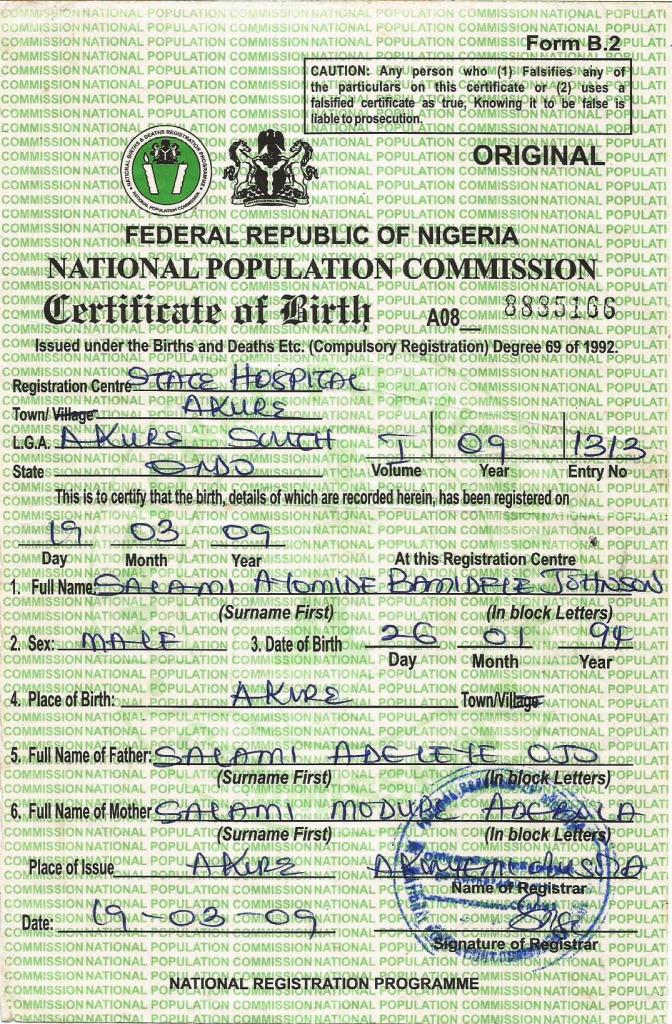 Form B.2
CAUTION: Any person who (1) Falsifies any of
the particulars on this certificate or (2) uses a
falsified certificate as true, Knowing it to be false is
liable to prosecution.
ORIGINAL
NATIONAL BIRTHS & DEATHS REGISTRATION PROGRAMME
NATIONAL POPULATION COMMISSION
FEDERAL REPUBLIC OF NIGERIA
NATIONAL POPULATION COMMISSION
Certificate of Birth A08 8835166
Issued under the Births and Deaths Etc. (Compulsory Registration) Degree 69 of 1992.
Registration Centre STATE HOSPITAL
Town/ Village AKURE
L.G.A. AKURE SOUTH I 09 1313
State ONDO Volume Year Entry No
This is to certify that the birth, details of which are recorded herein, has been registered on
19 03 09
Day Month Year At this Registration Centre
1. Full Name: SALAMI AYOMIDE BAMIDELE JOHNSON
(Surname First) (In block Letters)
2. Sex: MALE 3. Date of Birth 26 01 94
Day Month Year
4. Place of Birth: AKURE Town/Village
5. Full Name of Father: SALAMI ADELEYE OJO
(Surname First) (In block Letters)
6. Full Name of Mother SALAMI MODUPE
(Surname First) (In block Letters)
Place of Issue AKURE
Name of Registrar
Date: 19-03-09
Signature of Registrar
NATIONAL REGISTRATION PROGRAMME